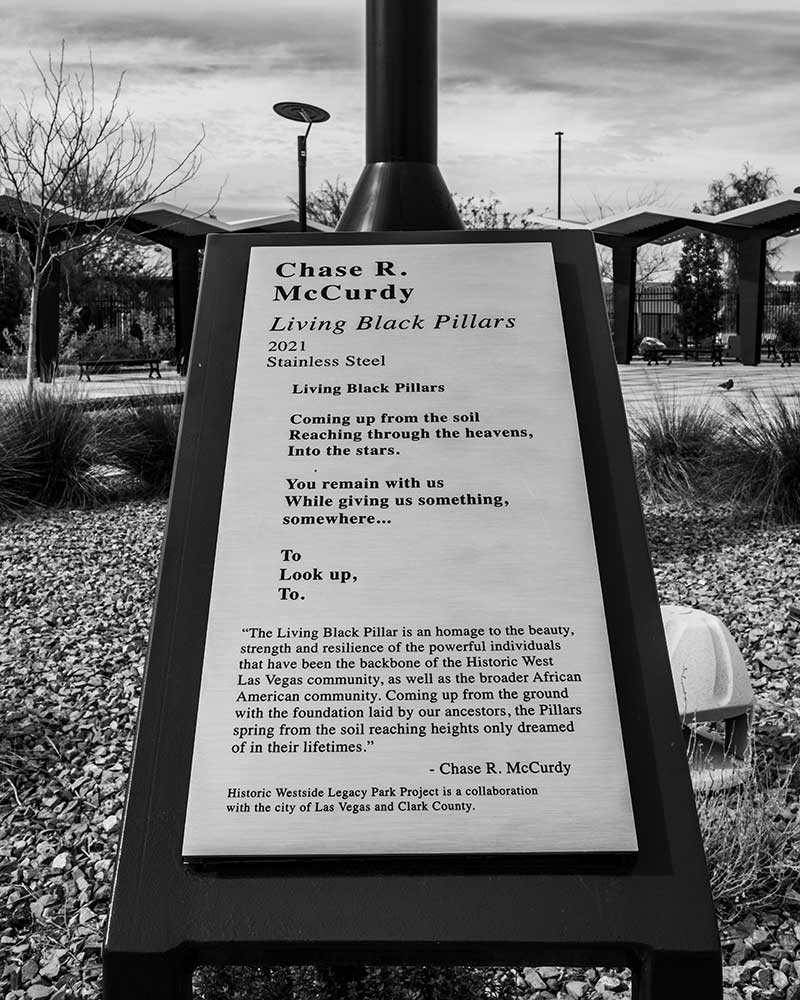 Chase R.
McCurdy
Living Black Pillars
2021
Stainless Steel
Living Black Pillars
Coming up from the soil
Reaching through the heavens,
Into the stars.
You remain with us
While giving us something,
somewhere...
To
Look up,
To.
“The Living Black Pillar is an homage to the beauty,
strength and resilience of the powerful individuals
that have been the backbone of the Historic West
Las Vegas community, as well as the broader African
American community. Coming up from the ground
with the foundation laid by our ancestors, the Pillars
spring from the soil reaching heights only dreamed
of in their lifetimes.”
- Chase R. McCurdy
Historic Westside Legacy Park Project is a collaboration
with the city of Las Vegas and Clark County.